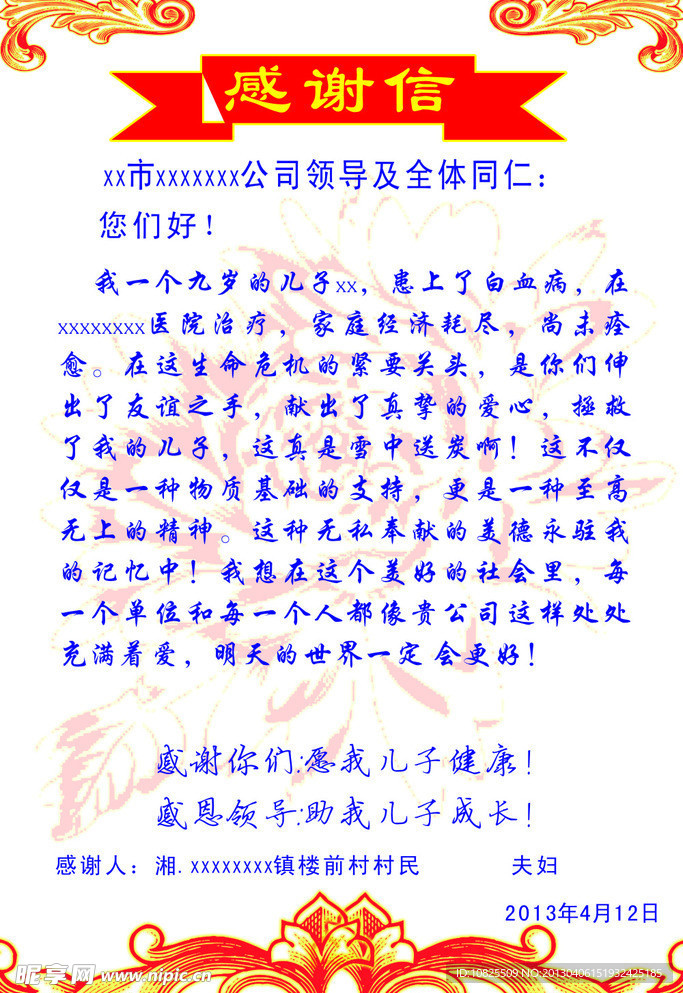 感谢信
xx市xxxxxxx公司领导及全体同仁：
您们好！
我一个九岁的儿子xx，患上了白血病，在
xxxxxxxx医院治疗，家庭经济耗尽，尚未痊
愈。在这生命危机的紧要关头，是你们伸
出了友谊之手，献出了真挚的爱心，拯救
了我的儿子，这真是雪中送炭啊！这不仅
仅是一种物质基础的支持，更是一种至高
无上的精神。这种无私奉献的美德永驻我
的记忆中！我想在这个美好的社会里，每
一个单位和每一个人都像贵公司这样处处
充满着爱，明天的世界一定会更好！
感谢你们:愿我儿子健康！
感恩领导:助我儿子成长！
感谢人：湘.xxxxxxxx镇楼前村村民 夫妇
2013年4月12日
昵享网 www.nipic.cn
ID:10825509 NO:20130406151932425185